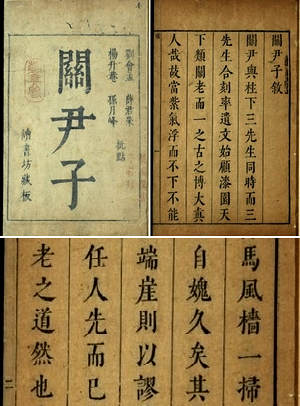 劉會孟 薛君采
楊升菴 孫月峰
批點
關尹子
書坊藏板
關尹子敘
關尹與柱下三先生同時而三
先生合刻率遺文始顧漆園天
下類關老而一之古之博大真
人哉故當紫氣浮而不下不能
馬風檣一掃
自媿久矣其
端崖則以謬
任人先而已
老之道然也
二